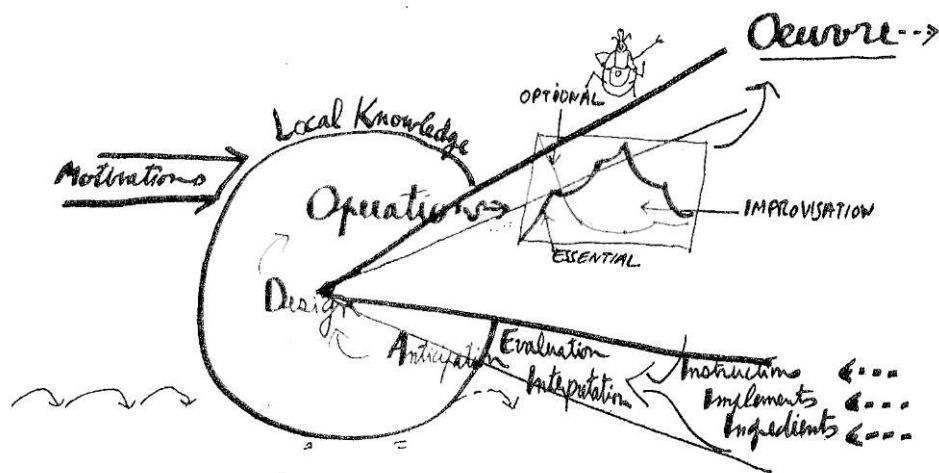 Oeuvre
OPTIONAL
Local Knowledge
Motivations
Operations
IMPROVISATION
ESSENTIAL
Design
Anticipation
Evaluation
Interpretation
Instructions
Implements
Ingredients